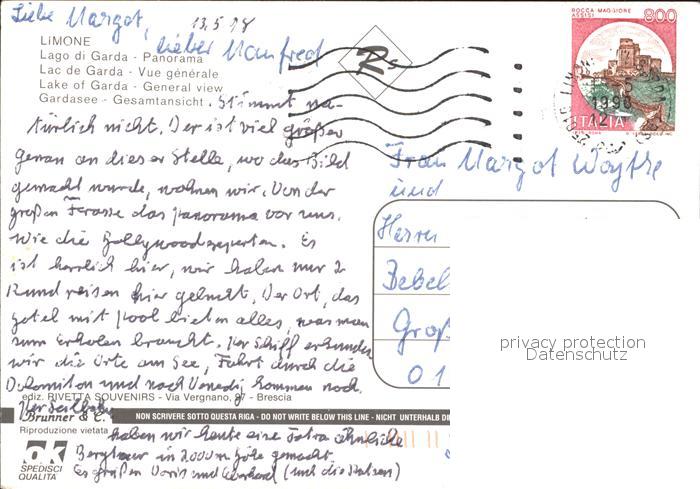 Liebe Margot, 13.5.98
lieber Manfred
LiMONE
Lago di Garda - Panorama
Lac de Garda - Vue générale
Lake of Garda - General view
Gardasee - Gesamtansicht. Stimmt na-
türlich nicht. Der ist viel größer
genau an dieser Stelle, wo das Bild
gemacht wurde, wohnen wir. Von der
großen Terasse das Panorama vor uns.
Wie die Es
ist herrlich hier, wir haben nur 2
Rundreisen hier gebucht. Der Ort, das
Hotel mit Pool bieten alles, was man
zum Erholen braucht. Per Schiff erkunden
wir die Orte am See, Fahrt durch die
Dolomiten und nach Venedig kommen noch.
ediz. RIVETTA SOUVENIRS - Via Vergnano, 87 - Brescia
Per Seilbahn
Brunner & C. NON SCRIVERE SOTTO QUESTA RIGA - DO NOT WRITE BELOW THIS LINE - NICHT UNTERHALB DI
Riproduzione vietata
haben wir heute eine Tatra ähnliche
Bergtour in 2000 m Höhe gemacht.
Es grüßen Doris und (und die Katzen)
ok
SPEDISCI
QUALITÀ
Rs
ROCCA MAGGIORE
ASSISI
800
ITALIA
1998
Frau Margot
und
Herrn
Bebel
Groß
01
privacy protection
Datenschutz